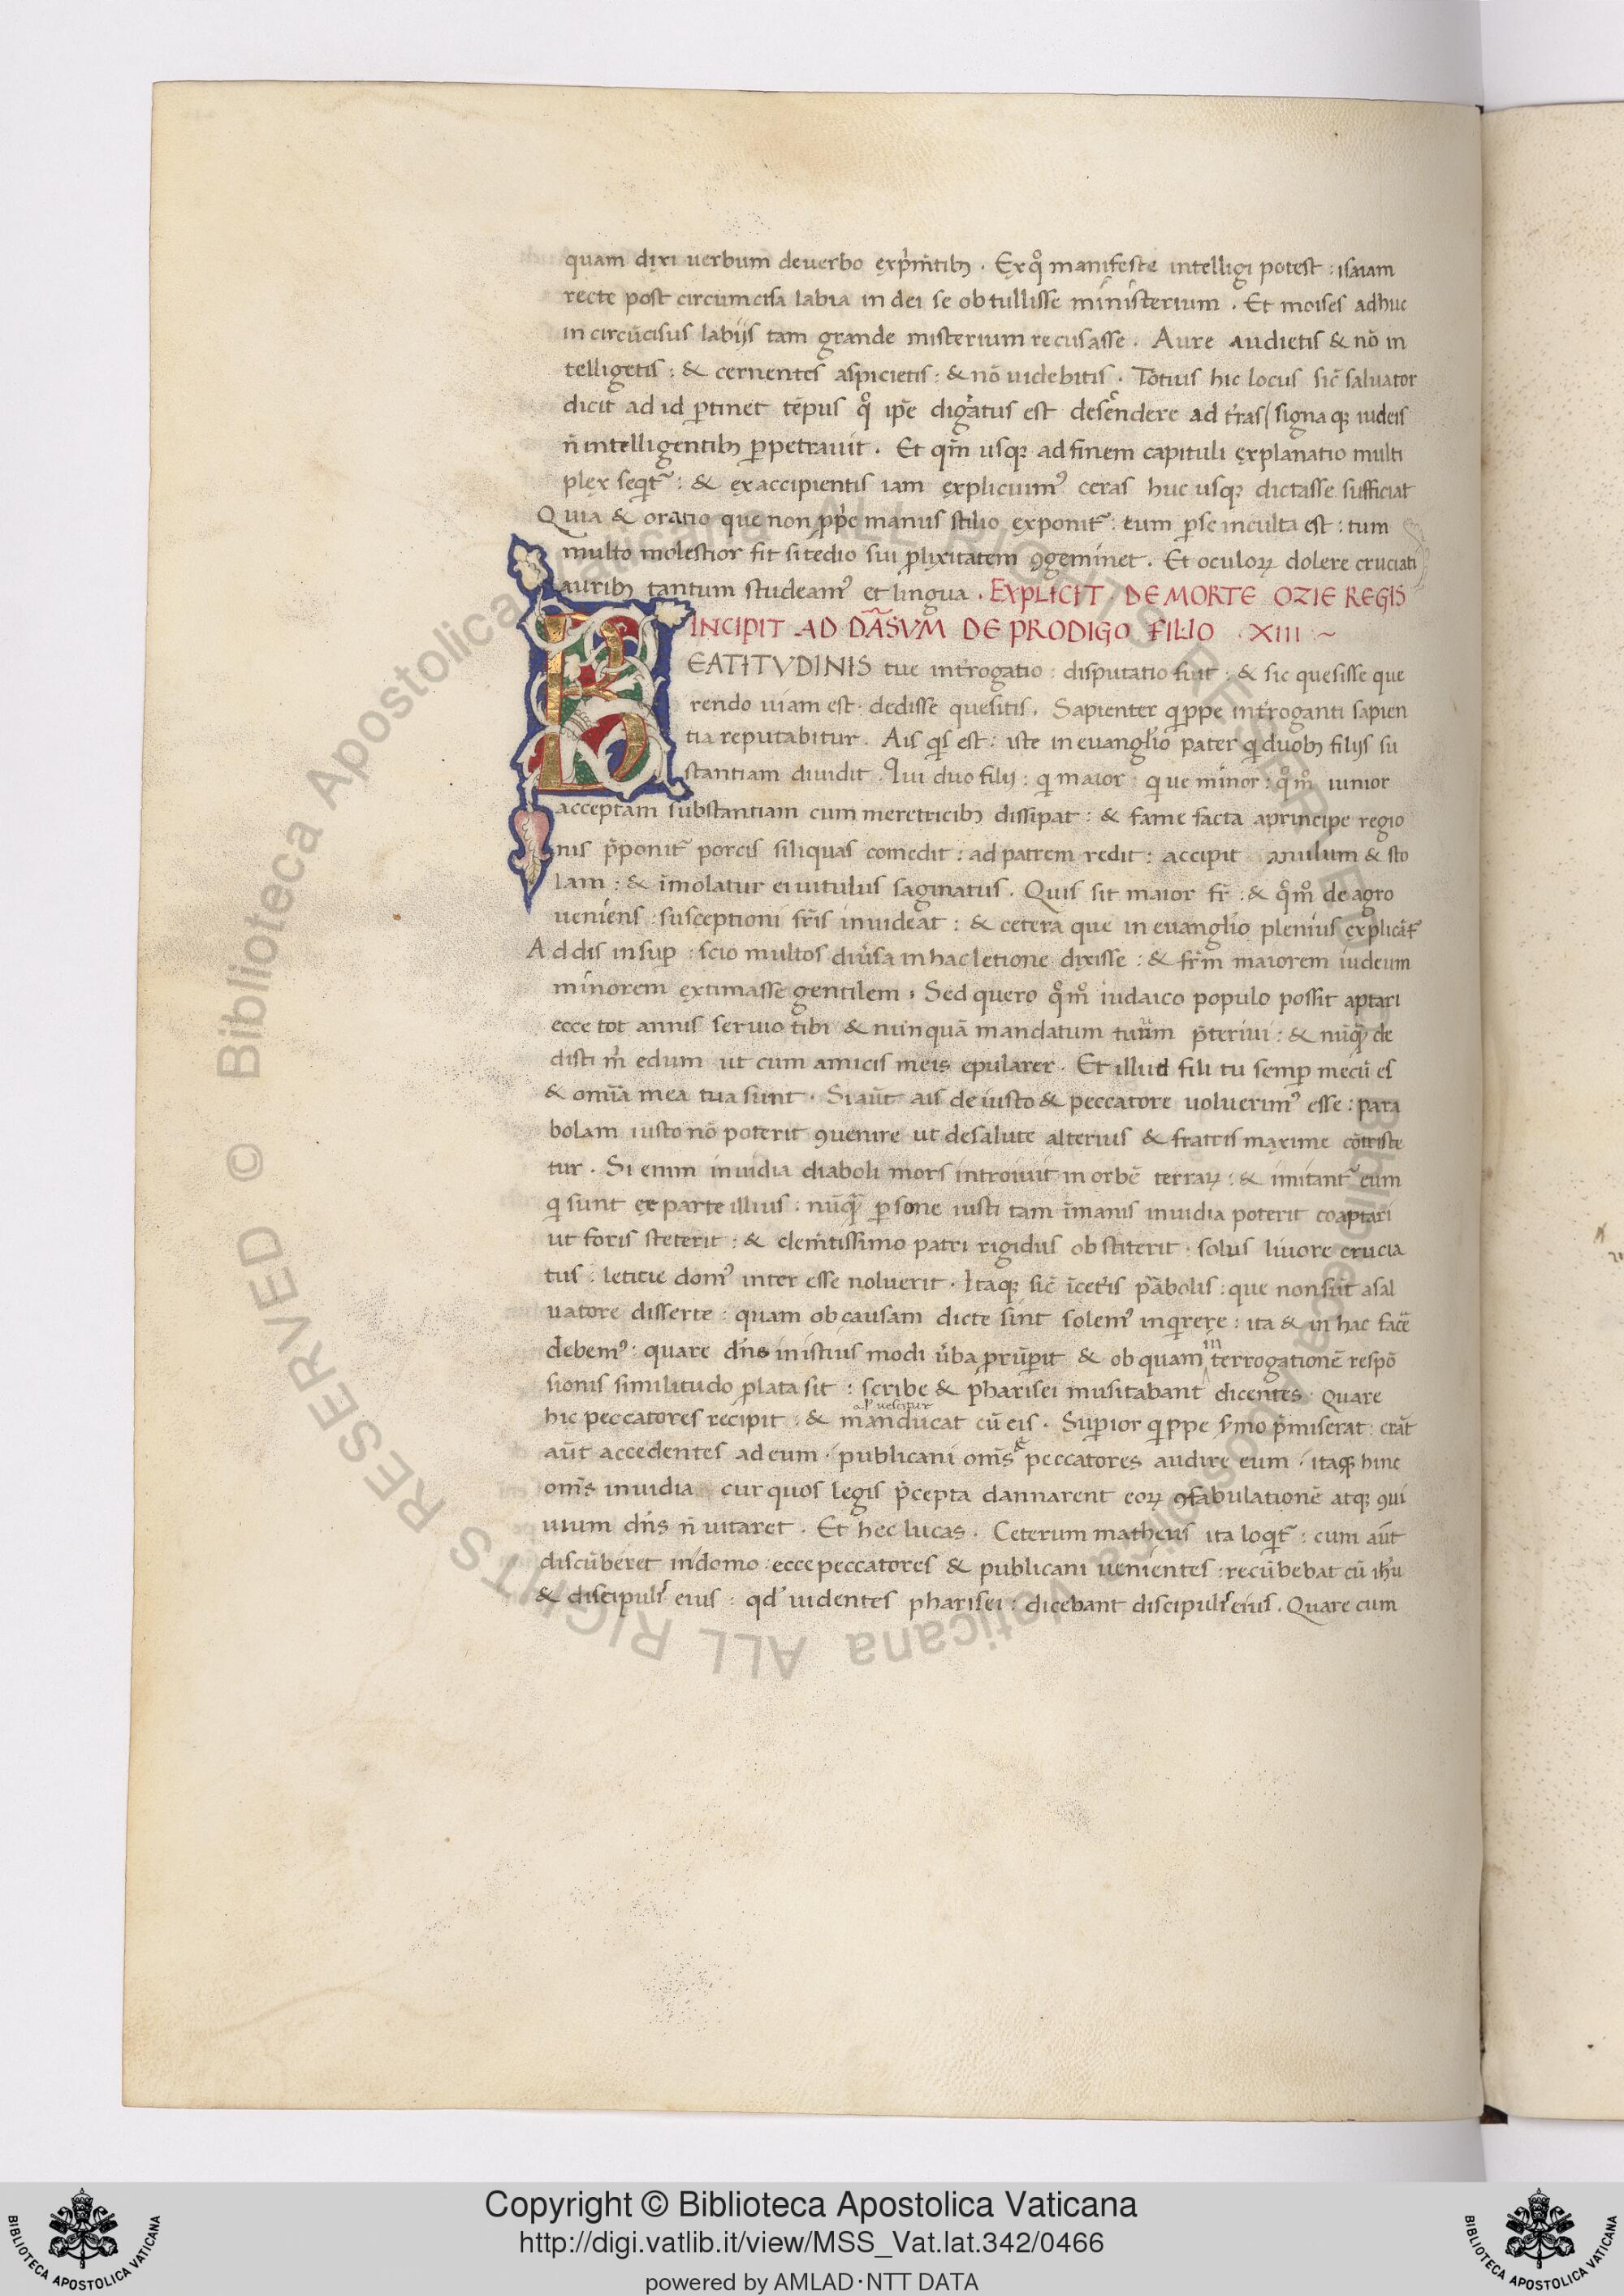 quam dixi uerbum deuerbo exp̃m̃tibꝫ . Exq̊ manifeste intelligi potest : isaiam
recte post circumcisa labia in dei se obtullisse ministerium . Et moises adhuc
in circũcisus labijs tam grande misterium recusasse . Aure audietis & nõ in
telligetis : & cernentes aspicietis : & nõ uidebitis . Totius hic locus sic̃ saluator
dicit ad id ꝑtinet tẽpus q̊ ip̃e dignatus est descendere ad tr̃as / signa qꝫ iudeis
ñ intelligentibꝫ ꝑpetrauit . Et qm̃ usqꝫ ad finem capituli explanatio multi
plex seqit᷑ : & exaccipientis iam explicuimꝰ ceras huc usqꝫ dictasse sufficiat
Quia & oratio que non ꝓp̃e manus stilio exponit᷑ : eum ꝑse inculta est : tum
multo molestior fit si tedio sui ꝓlixitatem ꝯgeminet . Et oculoꝝ dolere cruciati
auribꝫ tantum studeamꝰ et lingua . EXPLICIT DE MORTE OZIE REGIS
INCIPIT AD DÃSVM DE PRODIGO FILIO . XIII . ~
BEATITVDINIS tue int̃rogatio : disputatio fuit : & sic quesisse que
rendo uiam est . dedisse quesitis . Sapienter qippe int̃roganti sapien
tia reputabitur . Ais qis est : iste in euangl̃io pater qi duobꝫ filijs su
stantiam diuidit . Qui duo filij : qi maior : qi ue minor : q̊m̊ iunior
acceptam substantiam cum meretricibꝫ dissipat : & fame facta aprincipe regio
nis p̃ponit᷑ porcis siliquas comedit : ad patrem redit : accipit anulum & sto
lam : & ĩmolatur ei uitulus saginatus . Quis sit maior fr̃ : & q̊m̊ de agro
ueniens : susceptioni fr̃is inuideat : & cetera que in euanglio plenius explicãt᷑
Addis insuꝑ : scio multos diũsa in hac letione dixisse : & fr̃m maiorem iudeum
minorem extimasse gentilem . Sed quero q̊m̊ iudaico populo possit aptari
ecce tot annis seruio tibi & nunquã mandatum tuum p̃teriui : & nũq̃ de
disti m̃ edum ut cum amicis meis epularer . Et illud fili tu semꝑ mecũ es
& omĩa mea tua sunt . Si aũt ais de iusto & peccatore uoluerimꝰ esse : para
bolam iusto nõ poterit ꝯuenire ut desalute alterius & fratris maxime cõtriste
tur . Si enim inuidia diaboli mors introiuit in orbẽ terraꝝ : & imitant᷑ eum
qi sunt ex parte illius : nũq̃ ꝑsone iusti tam ĩmanis inuidia poterit coaptari
ut foris steterit : & clem̃tissimo patri rigidus obstiterit . solus liuore crucia
tus : leticie domꝰ inter esse noluerit . Itaqꝫ sic̃ ĩcet̃is p̃abolis : que non sũt asal
uatore disserte : quam ob causam dicte sint solemꝰ inqirere : ita & in hac facẽ
debemꝰ : quare dñs inistius modi ũba ꝓrũꝑit & ob quam interrogationẽ respõ
sionis similitudo ꝓlata sit : scribe & pharisei musitabant dicentes . Quare
al' uescitur
hic peccatores recipit : & manducat cũ eis . Suꝑior qippe s̃mo p̃miserat : erãt
aũt accedentes ad eum . publicani om̃s & peccatores audire eum . itaqꝫ hinc
om̃s inuidia cur quos legis p̃cepta dannarent eoꝝ ꝯfabulationẽ atqꝫ ꝯui
uium dñs ñ uitaret . Et hec lucas . Ceterum matheus ita loqit᷑ : cum aũt
discũberet indomo : ecce peccatores & publicani uenientes : recũbebat cũ ihũ
& discipulis eius : qd' uidentes pharisei : dicebant discipulis eius . Quare cum
Copyright © Biblioteca Apostolica Vaticana
http://digi.vatlib.it/view/MSS_Vat.lat.342/0466
powered by AMLAD·NTT DATA
BIBLIOTECA APOSTOLICA VATICANA
BIBLIOTECA APOSTOLICA VATICANA
© Biblioteca Apostolica Vaticana ALL RIGHTS RESERVED
© Biblioteca Apostolica Vaticana ALL RIGHTS RESERVED